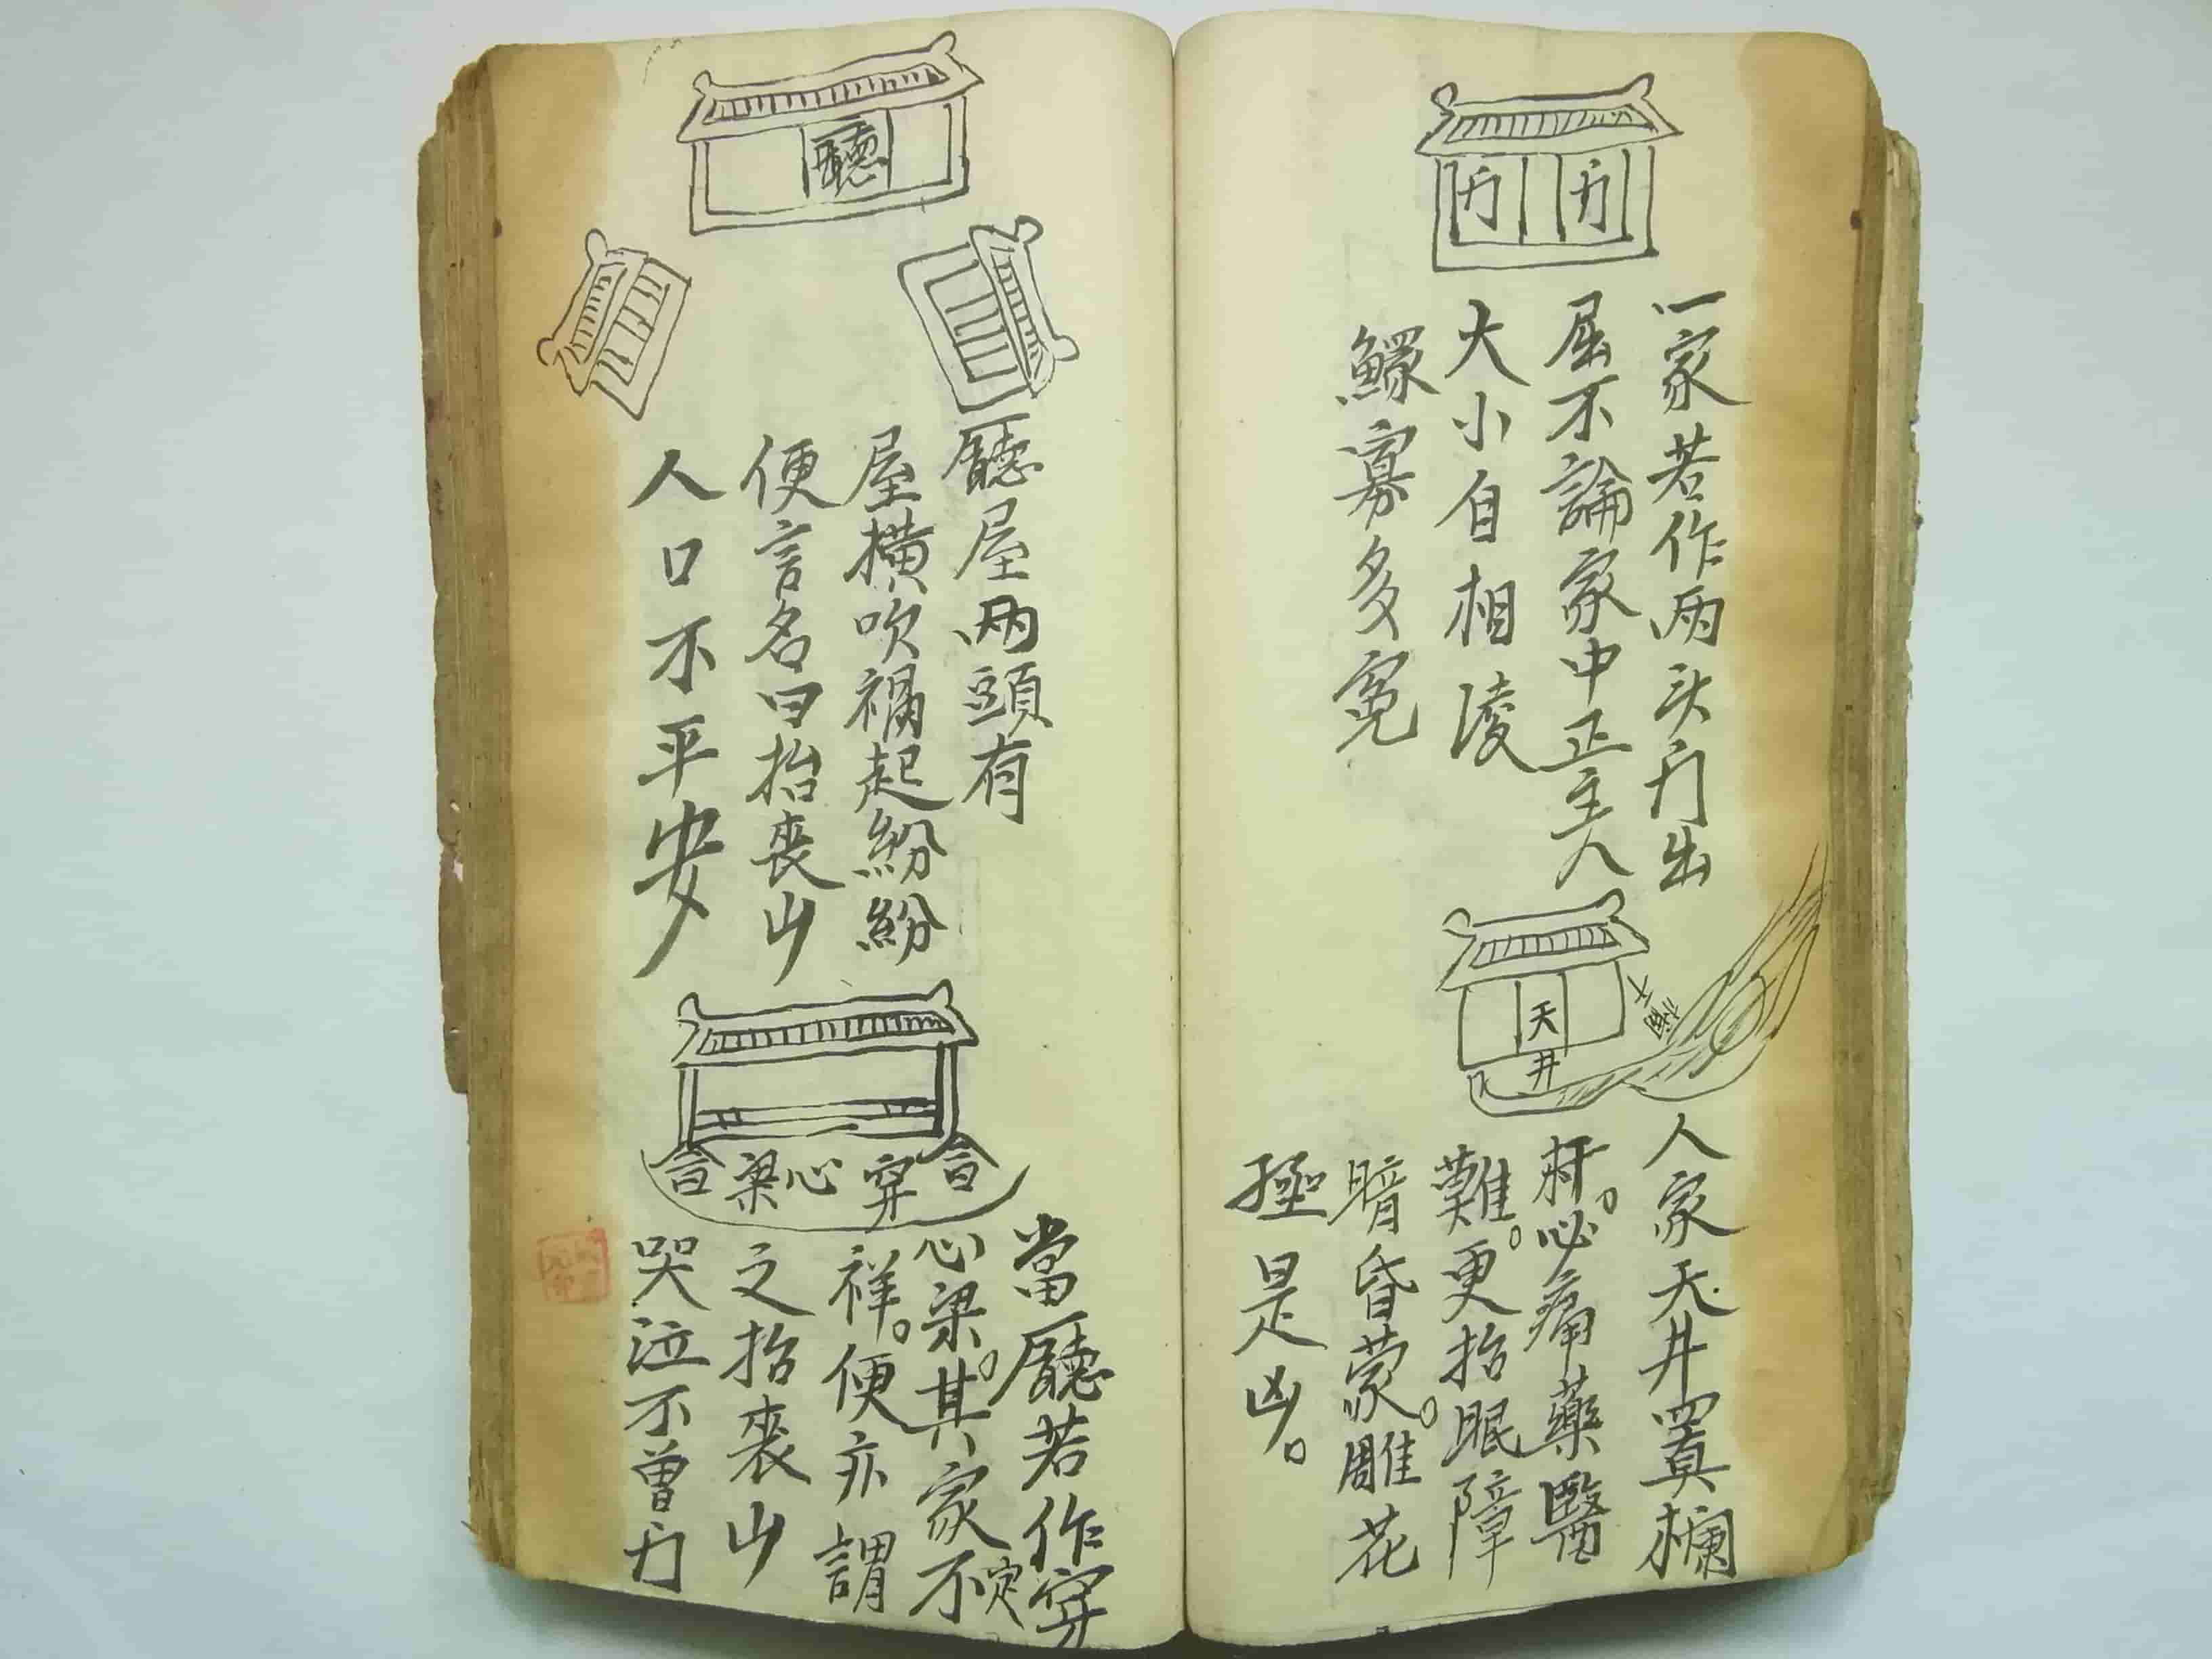 一家若作两头门出
屈不論家中正主人
大小自相淩
鰥寡多寃
门 门
天井
人家天井置欄
杆。必痛藥醫
難。更抬眼障
暗昏蒙。雕花
極是凶。
聽
廳屋兩頭有
屋横吹禍起紛紛
便言名曰抬喪山
人口不平安
穿心梁
當廳若作穿
心梁。其家不定
祥。便亦謂
之抬喪山
哭泣不曾门